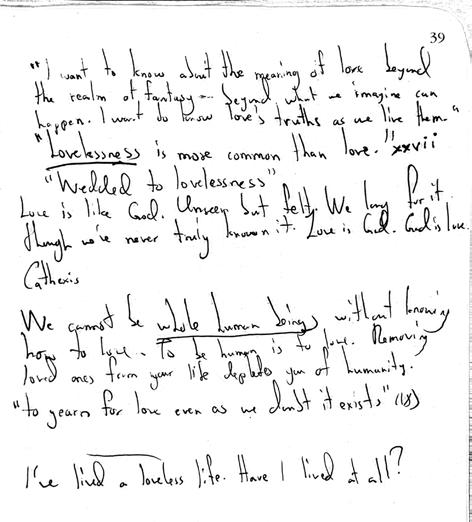 39
"I want to know about the meaning of love beyond
the realm of fantasy — beyond what we imagine can
happen. I want to know love's truths as we live them."
"Lovelessness is more common than love." xxvii
"Wedded to lovelessness"
Love is like God. Unseen but felt. We long for it
though we've never truly known it. Love is God. God is love.
Cathexis
We cannot be whole human beings without knowing
how to love. To be human is to love. Removing
loved ones from your life depletes you of humanity.
"to yearn for love even as we doubt it exists" (18)
I've lived a loveless life. Have I lived at all?